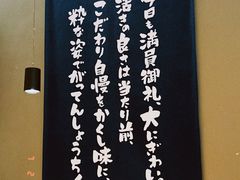 今日も満員御礼、大にぎわい
活きの良さは当たり前、
こだわり自慢をかくし味に、
粋な姿でがってんしょうちく